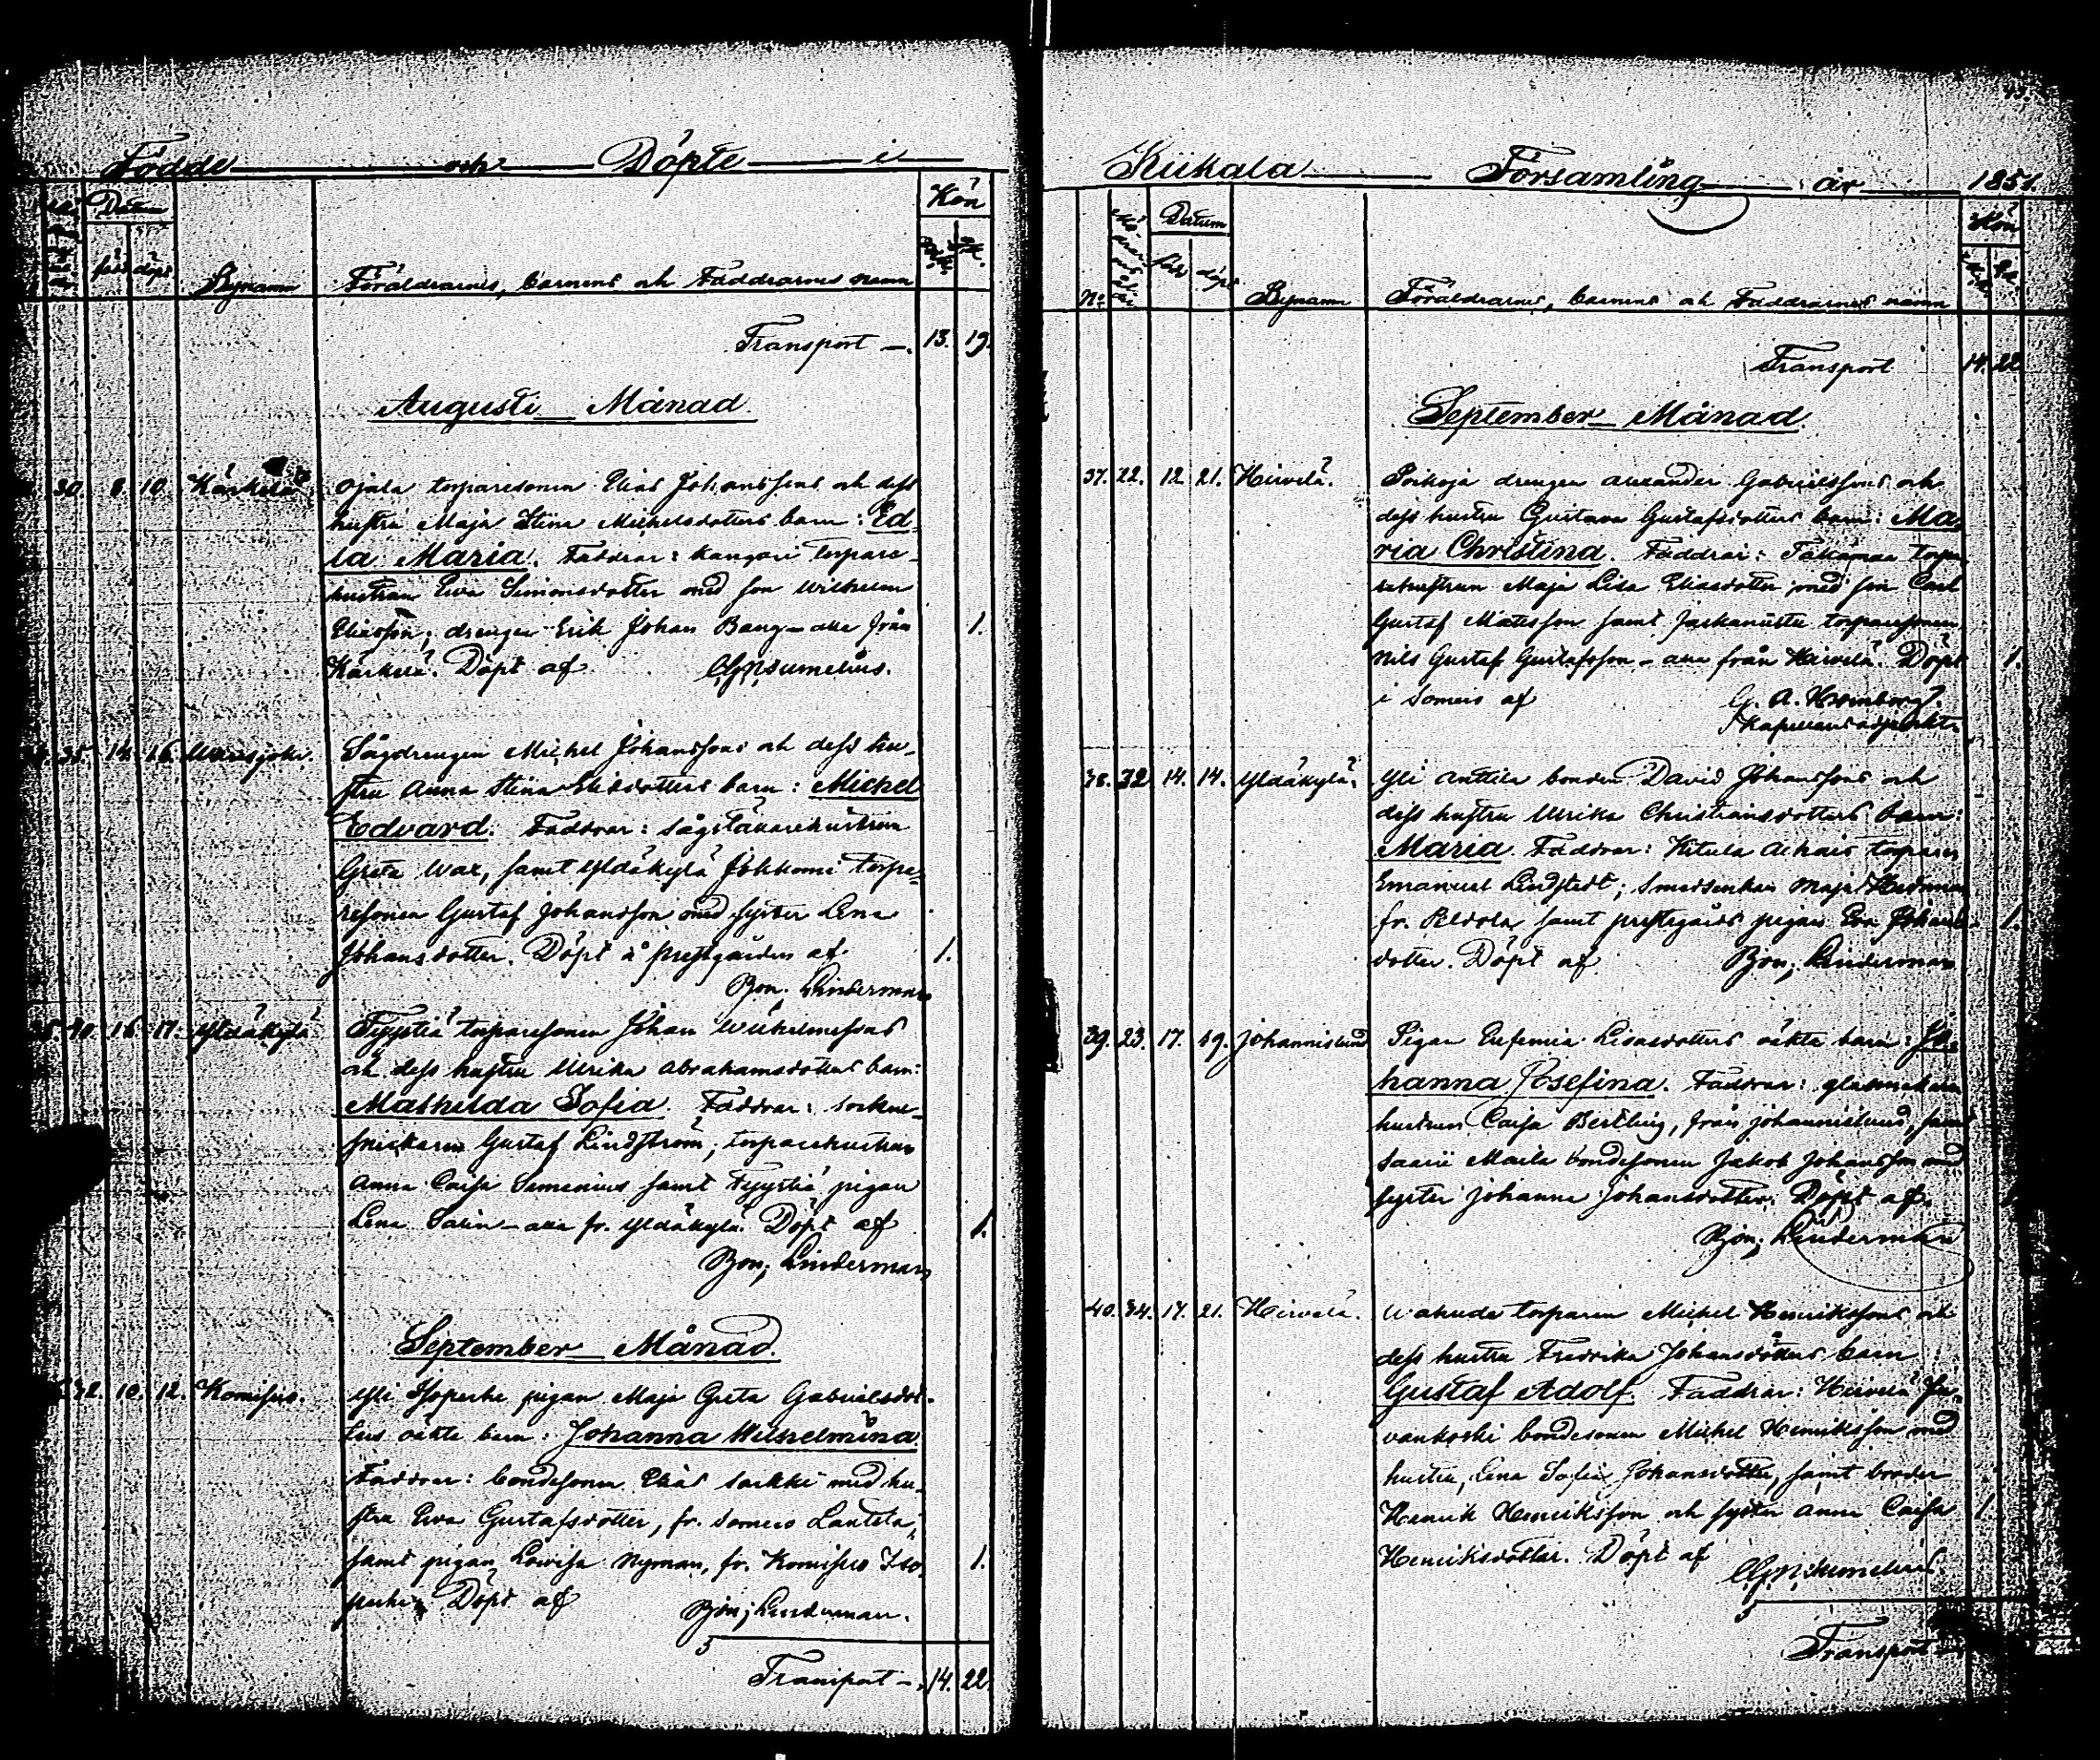 Födde och Döpte i
Datum
Kön
född döpt
Bynamn Föräldrarnes, barnens och Faddrarnes namn
Transport —. 13. 19.
Augusti Månad.
30. 8. 10. Kärkelä. Ojala torparesonen Elias Johanssons och dess
hustru Maja Stina Michelsdotters barn: Ed-
la Maria. Faddrar: Kangari torpare-
hustrun Ewa Simonsdotter med son Wilhelm
Eliasson; drengen Erik Johan Bang - alla från 1.
Kärkelä. Döpt af Sumelius.
35. 14. 16. Sågdrengen Michel Johanssons och dess hu-
stru Anna Stina Eliedotters barn: Michel
Edvard. Faddrar: sågställarehustrun
Greta Wax, samt Yldäkylä Jokkomi torpa-
resonen Gustaf Johansson med syster Lena
Johansdotter. Döpt å prestgården af 1.
Bjon. Linderman
16. 17. Yldäkylä Fyystiä torparesonen Johan Wilhelmssons
och dess hustru Ulrika Abrahamsdotters barn:
Mathilda Sofia. Faddrar: sockne-
snickaren Gustaf Lindström; torparehustrun
Anna Caisa Simenius samt Fyystiä pigan
Lena Salin - alla fr. Yldäkylä. Döpt af 1.
Bjon; Linderman
September Månad.
10. 12. Komisuo. Yli Isoperhe pigan Maja Greta Gabrielsdot-
ters oäkta barn: Johanna Wilhelmina.
Faddrar: bondesonen Elias Sarkki med hu-
stru Ewa Gustafsdotter, fr. Somero Lautela;
samt pigan Lovisa Nyman, fr. Komisuo Iso 1.
perhe. Döpt af Bjon; Linderman.
Transport —. 14. 22
Kiikala Församling år 1851.
Datum
Kön
No född döpt
Bynamn Föräldrarnes, barnens och Faddrarnes namn
Transport 14. 22
September Månad
37. 22. 12. 21. Hirvelä. Poikoja drengen Alexander Gabrielssons och
dess hustru Gustava Gustafsdotters barn: Ma-
ria Christina. Faddrar: Takamaa torpa-
rehustrun Maja Lisa Eliasdotter med son Carl
Gustaf Matsson samt torparesonen
Nils Gustaf Gustafsson - alla från Hirvelä. Döpt 1.
i Somero af G. A. Hermborg.
Kapellansadjunkt.
38. 32. 14. 14. Yldäkylä. Yli Anttila bonden David Johanssons och
dess hustru Ulrika Christiansdotters barn:
Maria. Faddrar: Kitula torparen
Emanuel Lindstedt; smedsenkan Maja
fr. samt prestgårds pigan Eva Johans- 1.
dotter. Döpt af Bjon; Linderman
39. 23. 17. 19. Johannislund Pigan Eufemia Lisasdotters oäkta barn: Jo-
hanna Josefina. Faddrar: glasmakare
hustrun Caisa Bertling, från Johannislund, samt
Saarii Maila bondesonen Jakob Johansson med
syster Johanna Johansdotter. Döpt af
Bjon; Linderman
40. 34. 17. 21. Hirvelä. Wahude torparen Michel Henrikssons och
dess hustru Fredrika Johansdotters barn:
Gustaf Adolf. Faddrar: Hirvelä Ju-
vankoski bondesonen Michel Henriksson med
hustru, Lena Sofia Johansdotter, samt broder
Henrik Henriksson och syster Anna Caisa 1.
Henriksdotter. Döpt af Sumelius.
Transport